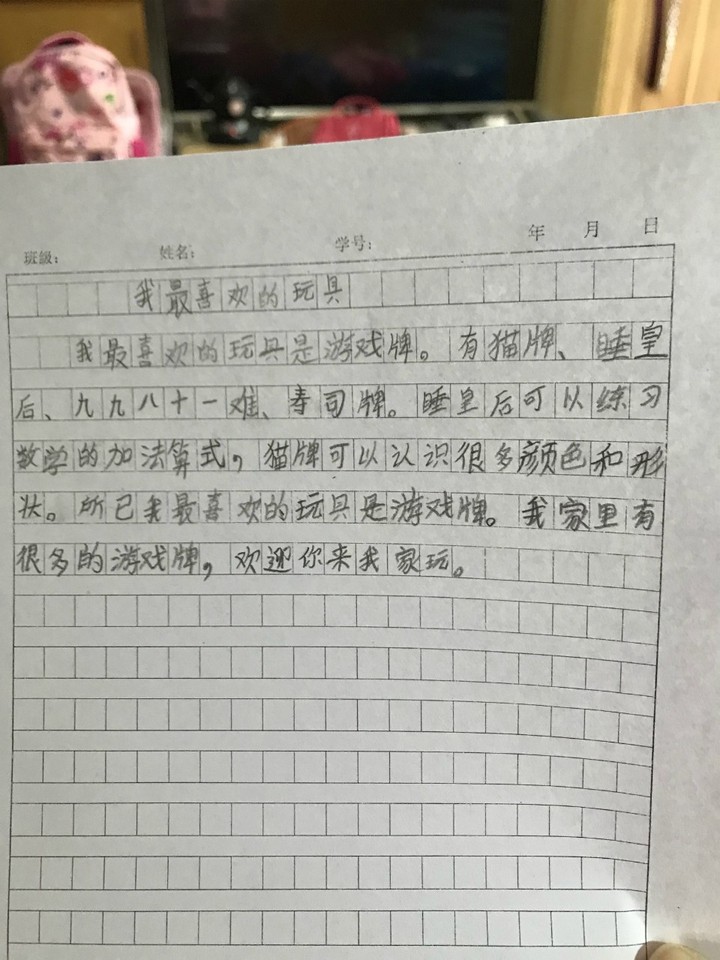 班级： 姓名： 学号： 年 月 日
我最喜欢的玩具
我最喜欢的玩具是游戏牌。有猫牌、睡皇
后、九九八十一难、寿司牌。睡皇后可以练习
数学的加法算式，猫牌可以认识很多颜色和形
状。所已我最喜欢的玩具是游戏牌。我家里有
很多的游戏牌，欢迎你来我家玩。